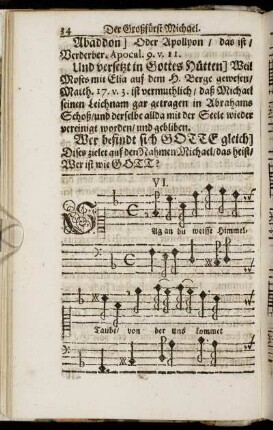 34 Der Großfürst Michael.
Abaddon] Oder Apollyon / das ist /
Verderber. Apocal. 9. v. 11.
Und versetzt in Gottes Hütten] Weil
Moses mit Elia auf dem H. Berge gewesen /
Matth. 17. v. 3. ist vermuthlich / daß Michael
seinen Leichnam gar getragen in Abrahams
Schoß / und derselbe allda mit der Seele wieder
vereinigt worden / und geblieben.
Wer befindt sich GOTTE gleich]
Dises zielet auf den Nahmen Michael / das heist /
Wer ist wie GOTT?
VI.
SAg an du weisse Himmel-
Taube / von der uns kommet